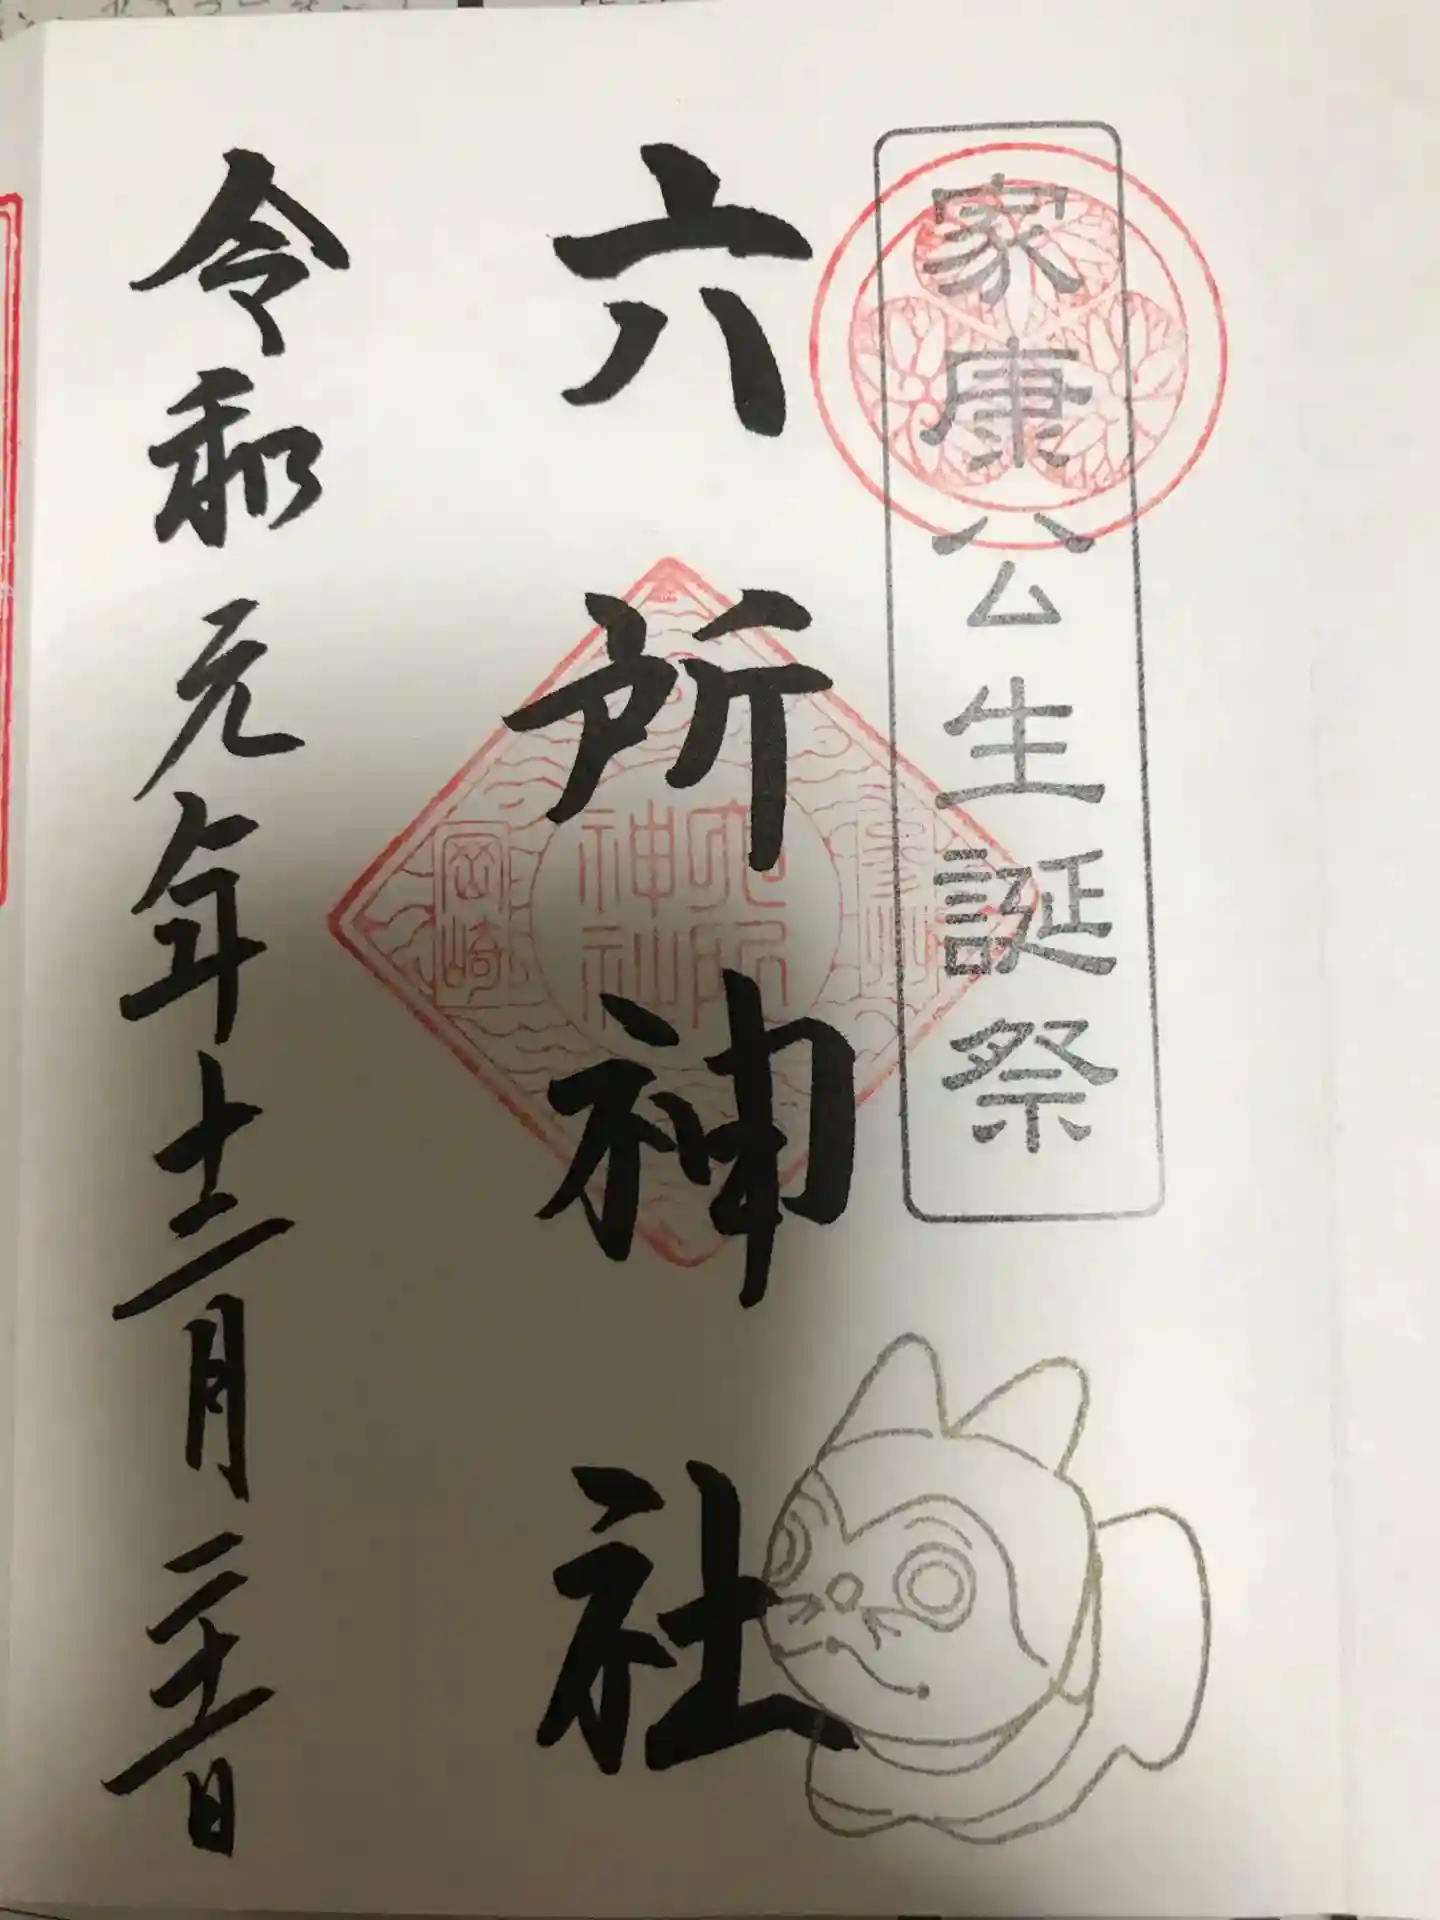 家康公生誕祭
六所神社
令和元年十二月二十二日
六所
神社
岡崎